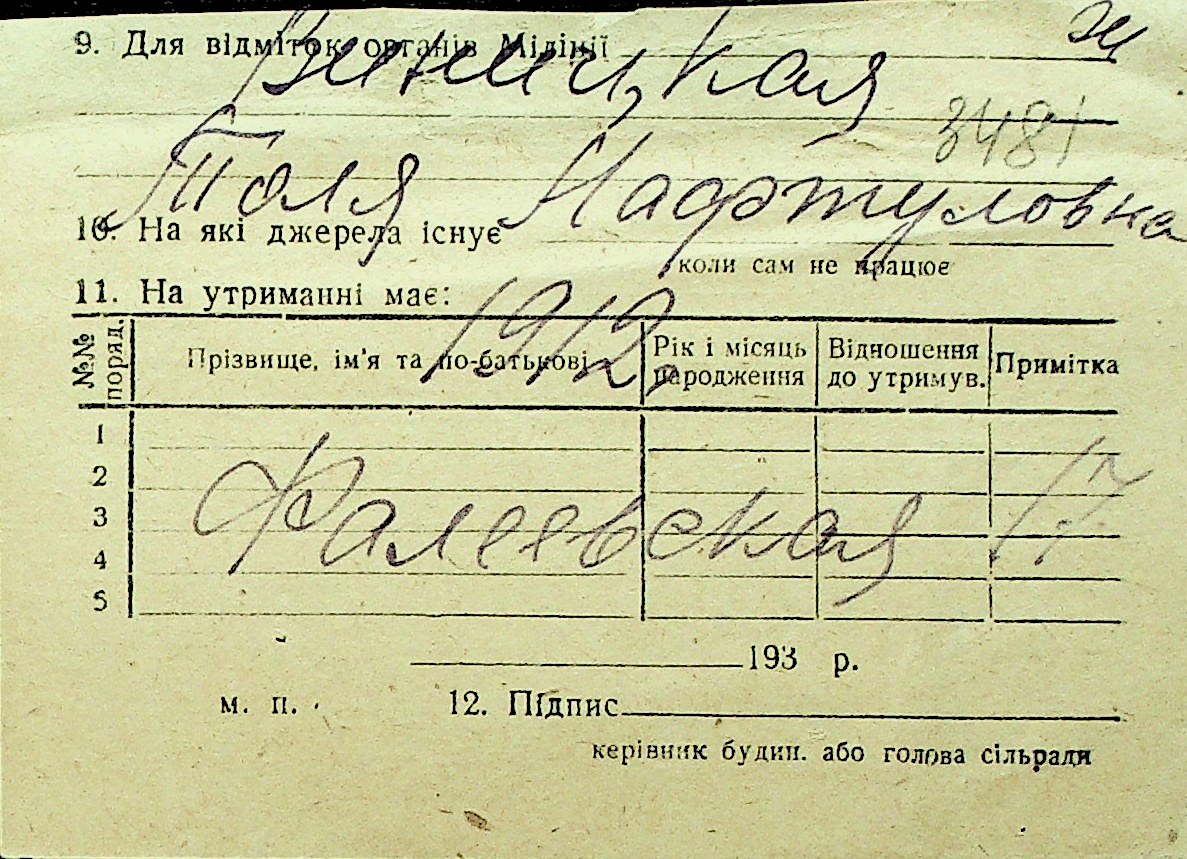 9. Для відміток органів Міліції
ж
Виницкая
3481
Поля Нафтуловна
10. На які джерела існує
коли сам не працює
11. На утриманні має:
1912
№№ поряд.
Прізвище, ім'я та по-батькові
Рік і місяць народження
Відношення до утримув.
Примітка
1
2
3
4
5
Фалеевская 17
193 р.
м. п.
12. Підпис
керівник будин. або голова сільради